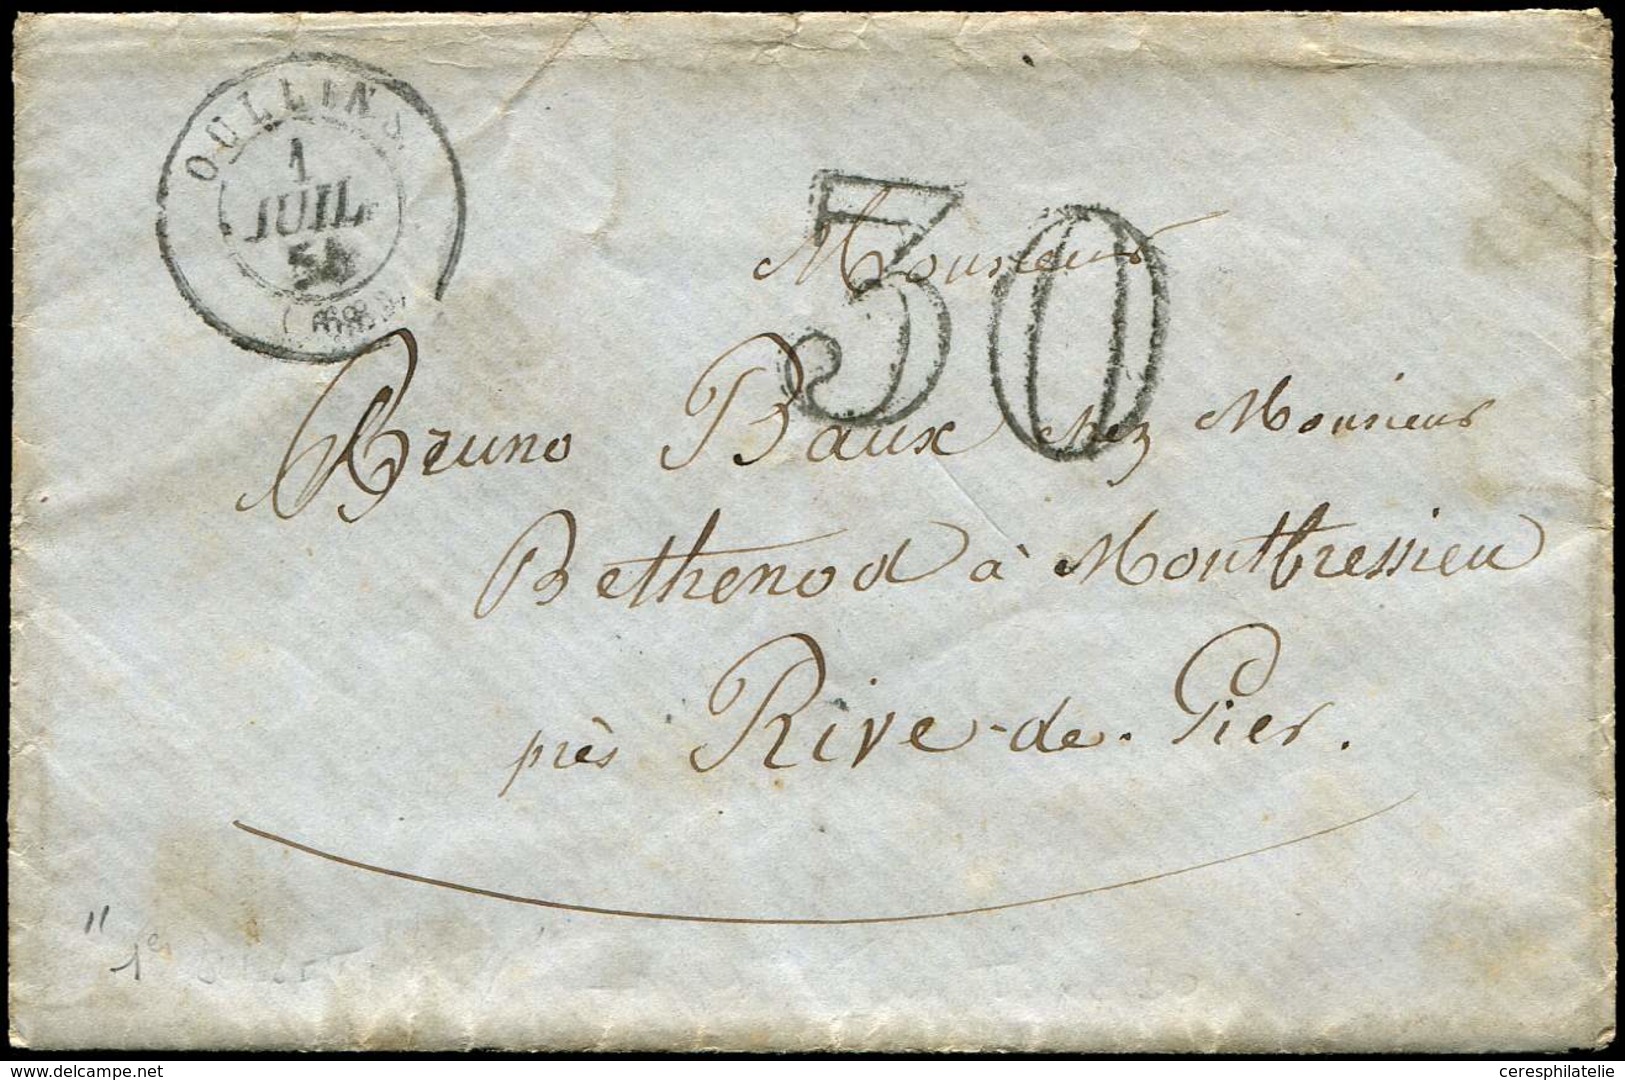 OULLINS
1
JUIL.
54
(68)
30
Monsieur
Bruno Baux chez Monsieur
Bethenod à Montbressieu
près Rive-de-Gier.
" 1er
delcampe.net
ceresphilatelie